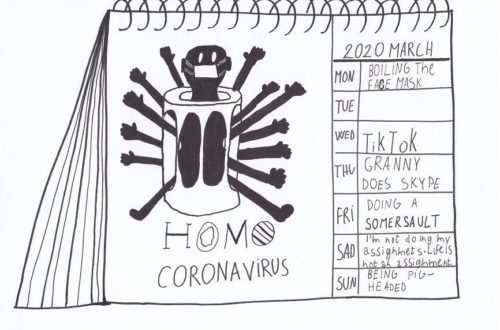 2020 MARCH
MON
BOILING The
FACE MASK
TUE
WED
TikTok
THU
GRANNY
DOES SKYPE
FRI
DOING A
SOMERSAULT
SAD
I'm not doing my
assighnets. Life is
not an assignment
SUN
BEING PIG-
HEADED
HOMO
CORONAVIRUS